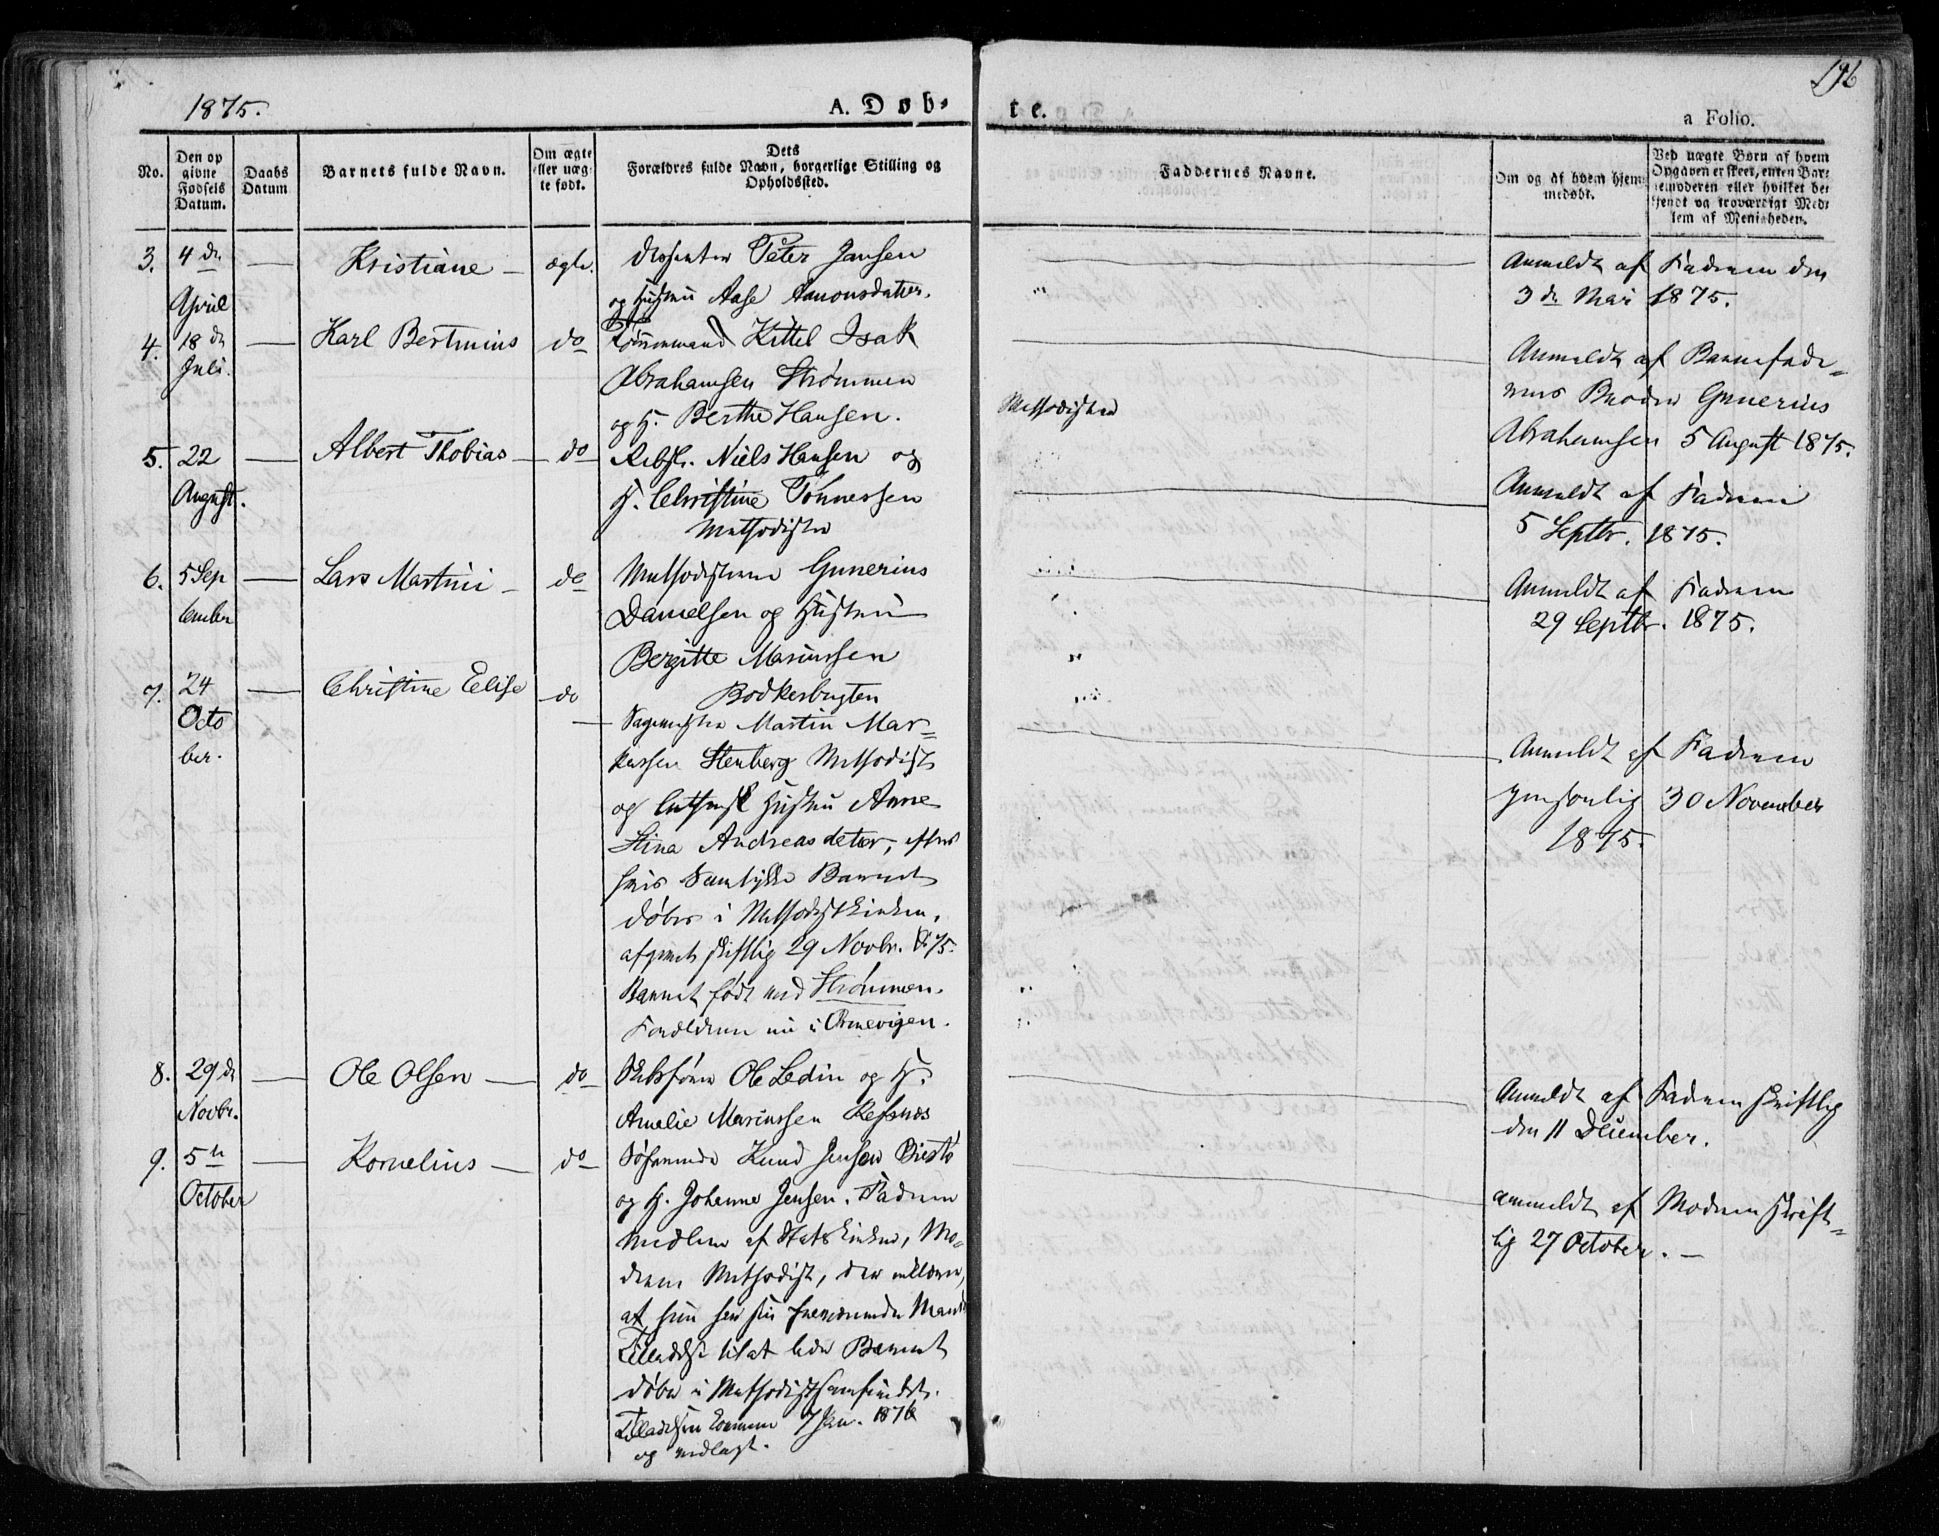 1875.
A. Døb-
te.
196
a Folio.
No.
Den op
givne
Fødsels
Datum.
Daabs
Datum
Barnets fulde Navn.
Om ægte
eller uæg-
te født.
Dets
Forældres fulde Navn, borgerlige Stilling og
Opholdssted.
Faddernes Navne.
Om og af hvem hjem-
medøbt.
Ved uægte Børn af hvem
Opgaven er skeet, enten Bar-
nemoderen eller hvilket be-
kjendt og troværdigt Med-
lem af Menigheden.
3. 4 de
April
Kristiane
ægte.
Dissenter Peter Jansen
og Hustru Aase Aanonsdatter.
Anmeldt af Faderen den
3 de Mai 1875.
4. 18 de
Juli.
Karl Bertinius
do
Kittel Isak
Abrahamsen Strømmen
og H. Berthe Hansen.
Methodister
Anmeldt af Barnefade-
rens Broder Gunerius
Abrahamsen 5 August 1875.
5. 22
August.
Albert Thobias
do
Rebsl. Niels Hansen og
H. Christine Tønnessen
Methodister
Anmeldt af Faderen
5 Septbr. 1875.
6. 5 Sep
tember
Lars Martini
do
Methodisterne Gunerius
Danielsen og Hustru
Bergitte Mariussen
Bodkerbugten
Anmeldt af Faderen
29 Septbr. 1875.
7. 24
Octo
ber.
Christine Elise
do
Sagmester Martin Mar-
kussen Stenberg Methodist
og luthersk Hustru Anne
Stina Andreasdetter, efter
hvis Samtykke Barnet
døbes i Methodistkirken,
afgivet skriftlig 29 Novbr. 1875.
Barnet født ved Strømmen.
Forældrene nu i Ormevigen.
Anmeldt af Faderen
personlig 30 November
1875.
8. 29 de
Novbr.
Ole Olsen
do
Skibsfører Ole Ledin og H.
Amelie Mariussen Refsnes
Anmeldt af Faderen skriftlig
den 11 December.
9. 5 te
October
Kornelius
do
Søfarende Knud Jensen Biestö
og H. Johanne Jensen. Faderen
Medlem af Statskirken, Mo-
deren Methodist, der erklærer,
at hun har sin fraværende Mands
Tilladelse til at lade Barnet
døbe i Methodistsamfundet.
Tilladelsen kommen 7 Jan. 1876
og vedlagt.
anmeldt af Moderen skrift-
lig 27 October.